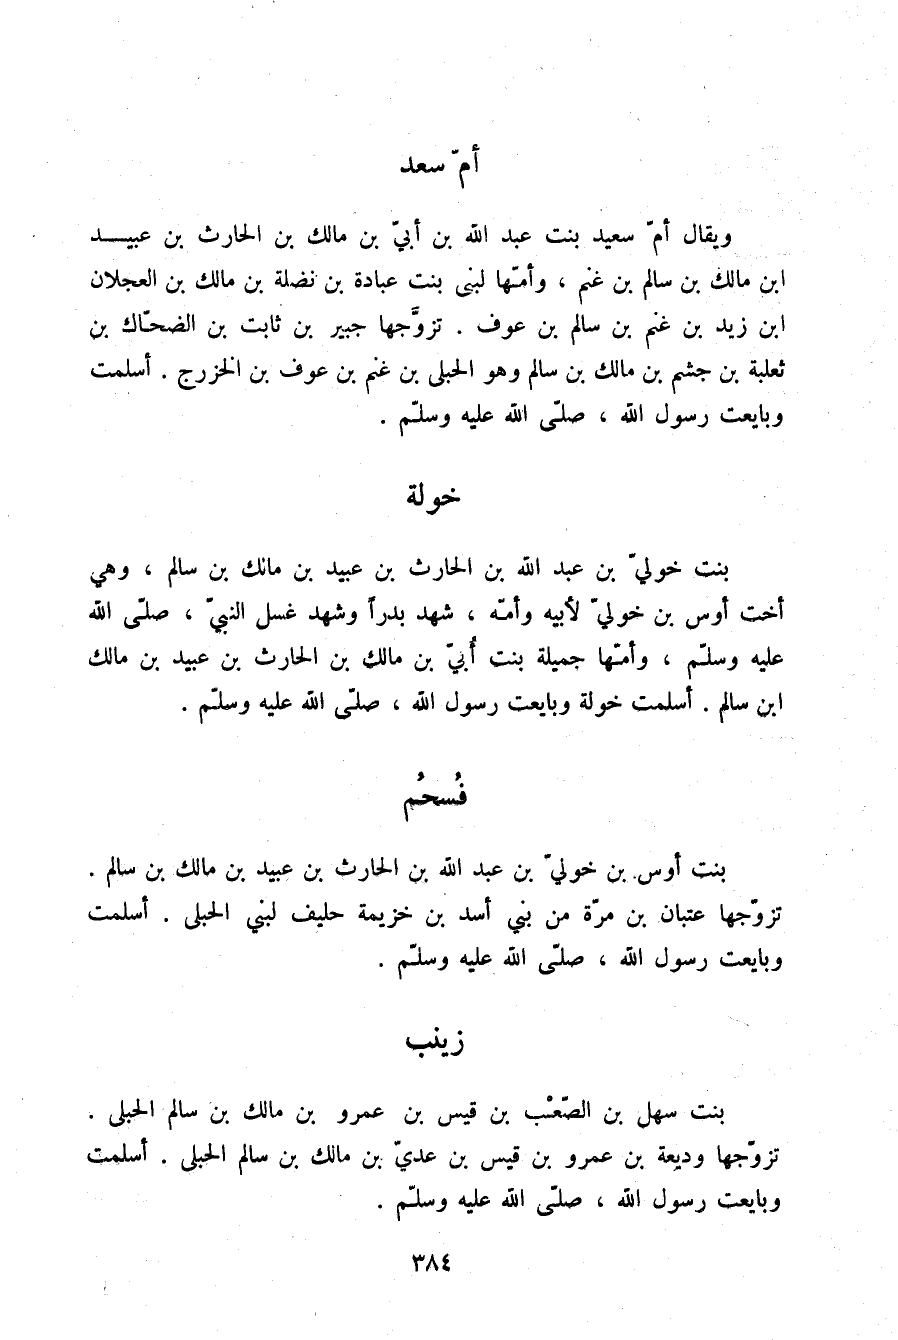 أمّ سعد
ويقال أمّ سعيد بنت عبد الله بن أبيّ بن مالك بن الحارث بن عبيـــد
ابن مالك بن سالم بن غنم ، وأمّها لبنى بنت عبادة بن نضلة بن مالك بن العجلان
ابن زيد بن غنم بن سالم بن عوف . تزوَّجها جبير بن ثابت بن الضحّاك بن
ثعلبة بن جشم بن مالك بن سالم وهو الحبلى بن غنم بن عوف بن الخزرج . أسلمت
وبايعت رسول الله ، صلّى الله عليه وسلّم .
خولة
بنت خوليّ بن عبد الله بن الحارث بن عبيد بن مالك بن سالم ، وهي
أخت أوس بن خوليّ لأبيه وأمّه ، شهد بدراً وشهد غسل النبيّ ، صلّى الله
عليه وسلّم ، وأمّها جميلة بنت أُبيّ بن مالك بن الحارث بن عبيد بن مالك
ابن سالم . أسلمت خولة وبايعت رسول الله ، صلّى الله عليه وسلّم .
فُسحُم
بنت أوس بن خوليّ بن عبد الله بن الحارث بن عبيد بن مالك بن سالم .
تزوّجها عتبان بن مرّة من بني أسد بن خزيمة حليف لبني الحبلى . أسلمت
وبايعت رسول الله ، صلّى الله عليه وسلّم .
زينب
بنت سهل بن الصّعْب بن قيس بن عمرو بن مالك بن سالم الحبلى .
تزوّجها وديعة بن عمرو بن قيس بن عديّ بن مالك بن سالم الحبلى . أسلمت
وبايعت رسول الله ، صلّى الله عليه وسلّم .
٣٨٤